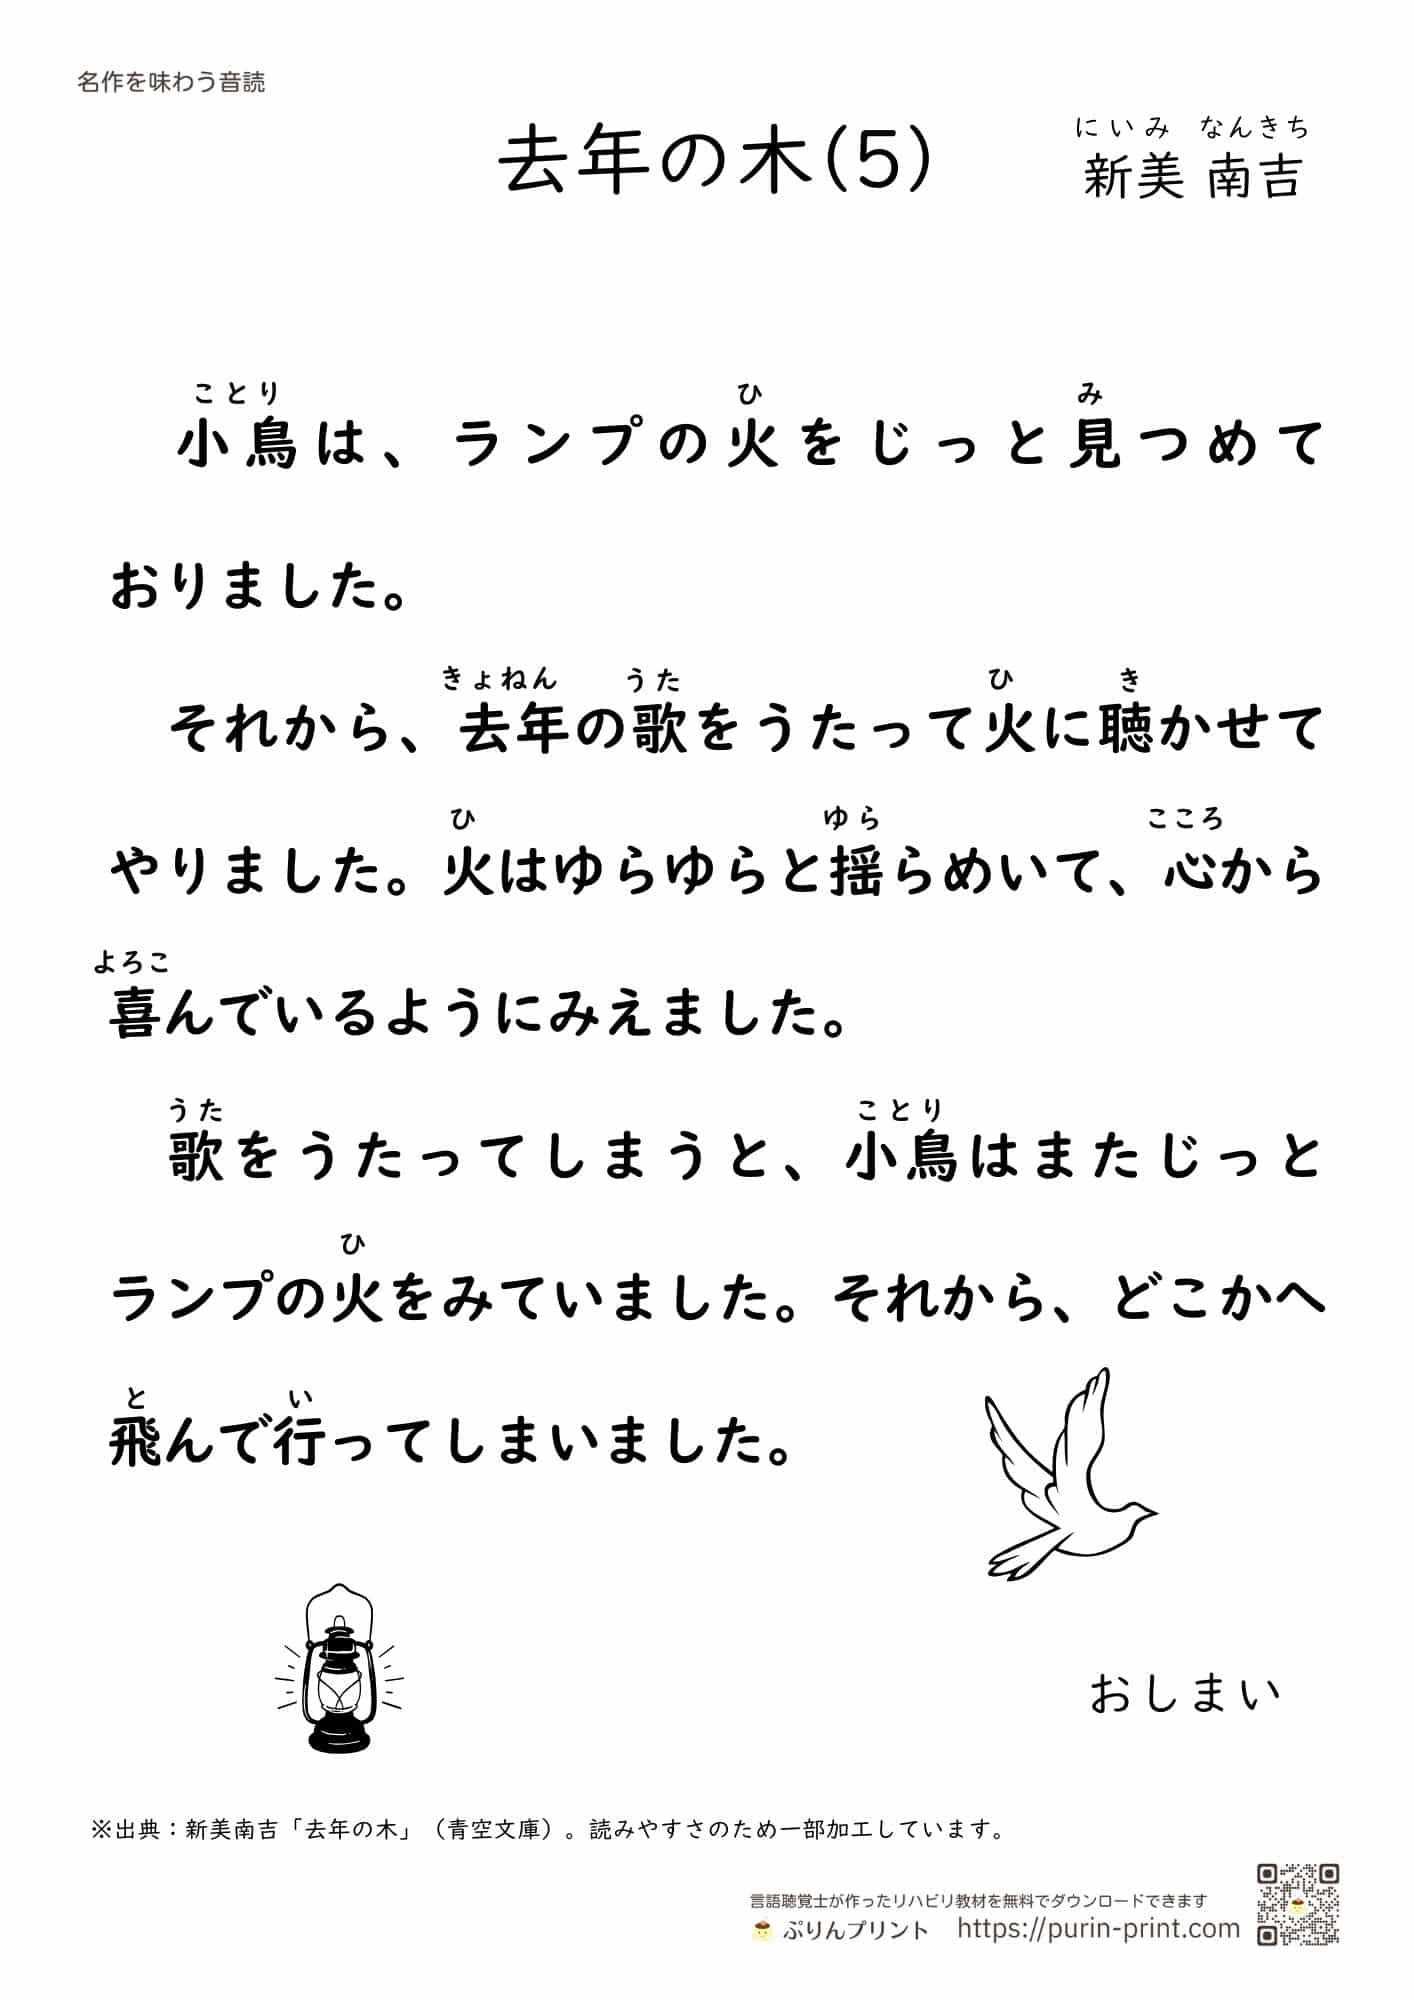 名作を味わう音読
去年の木(5)
にいみ なんきち
新美 南吉
ことり ひ み
小鳥は、ランプの火をじっと見つめて
おりました。
きょねん うた ひ き
それから、去年の歌をうたって火に聴かせて
ひ ゆら こころ
やりました。火はゆらゆらと揺らめいて、心から
よろこ
喜んでいるようにみえました。
うた ことり
歌をうたってしまうと、小鳥はまたじっと
ひ
ランプの火をみていました。それから、どこかへ
と い
飛んで行ってしまいました。
おしまい
※出典：新美南吉「去年の木」（青空文庫）。読みやすさのため一部加工しています。
言語聴覚士が作ったリハビリ教材を無料でダウンロードできます
ぷりんプリント https://purin-print.com